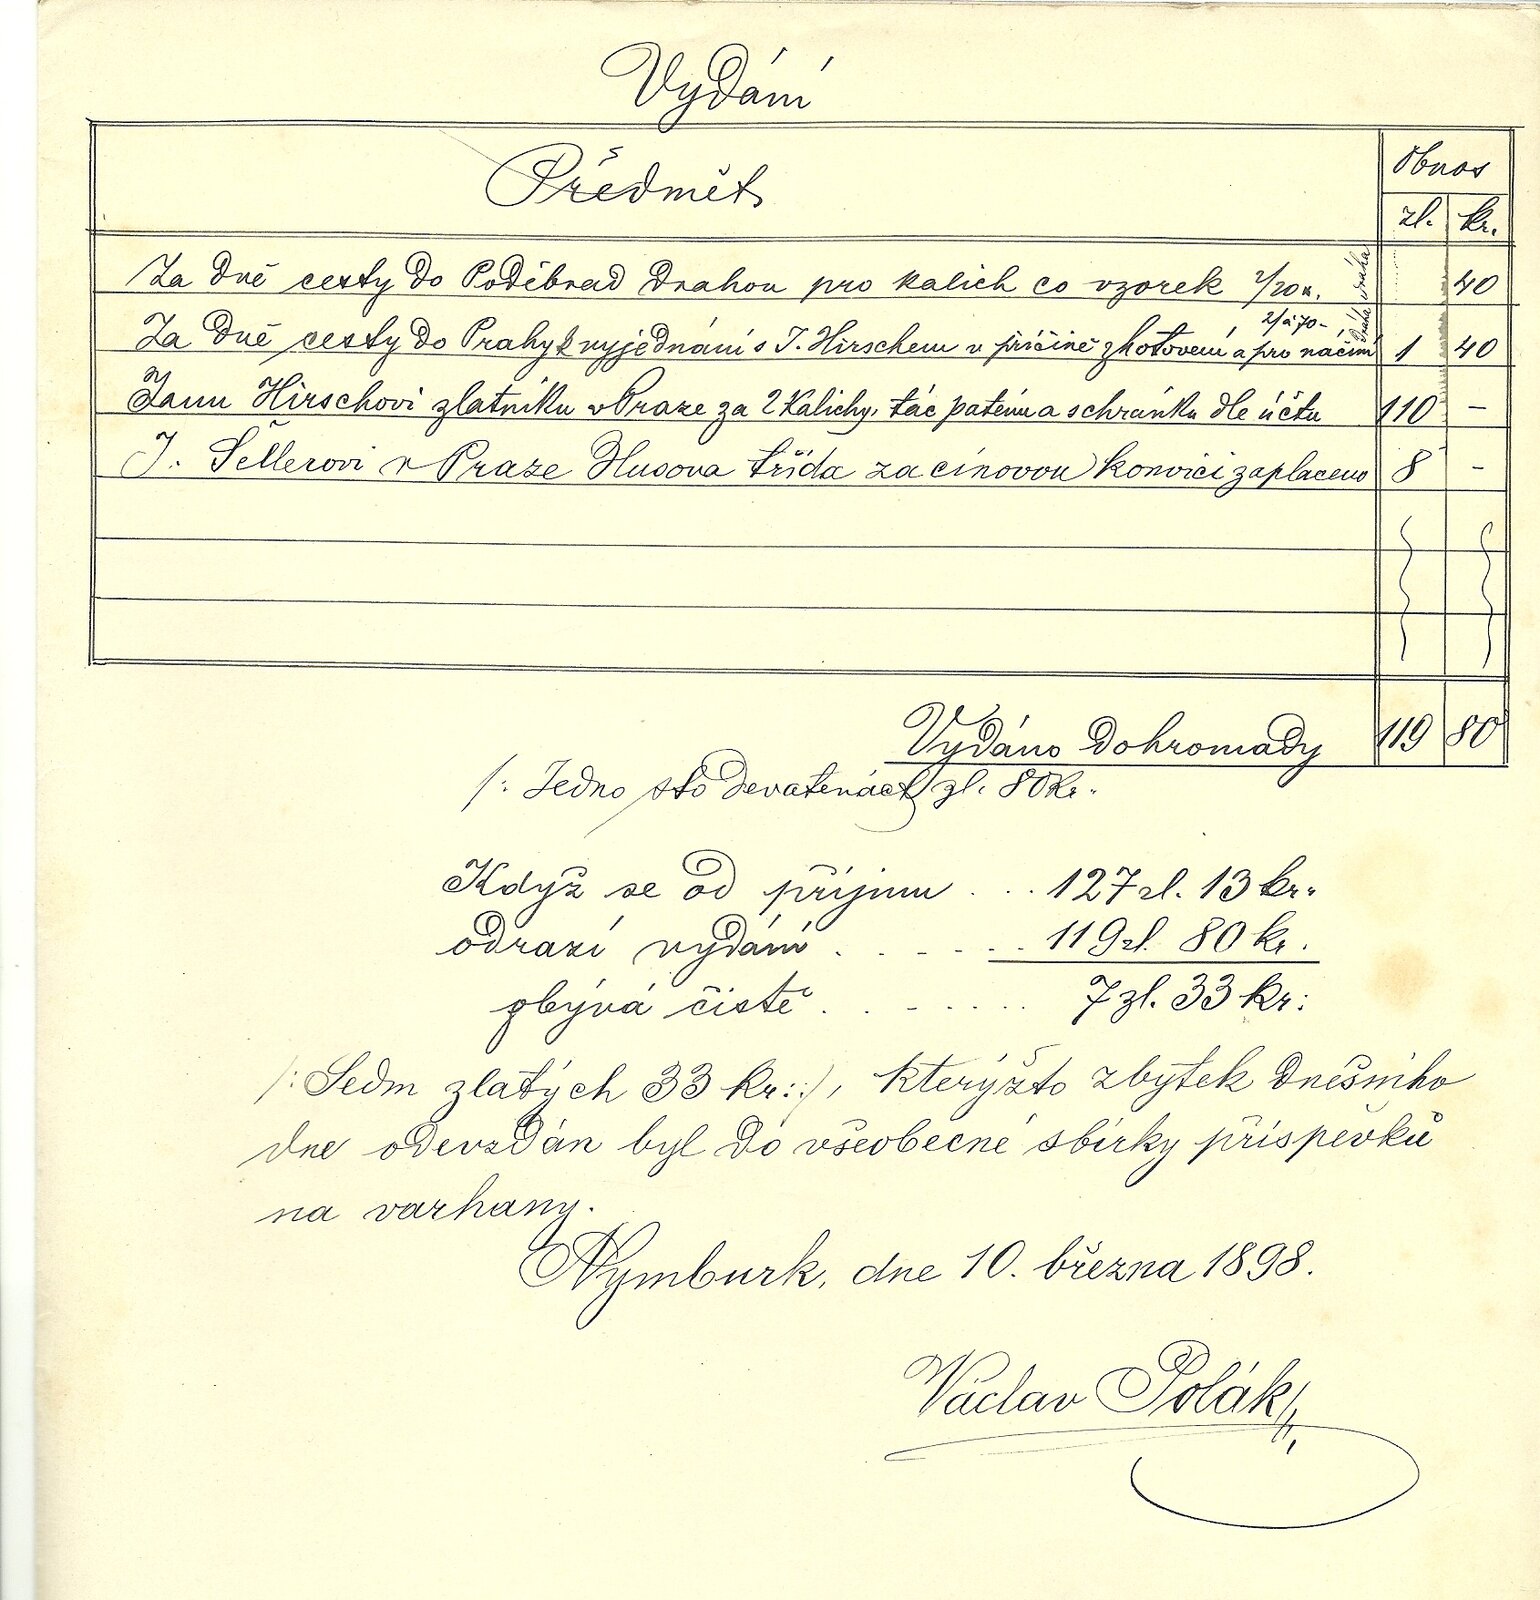 Vydání
Předmět
Obnos
zl. kr.
Za dvě cesty do Poděbrad drahou pro kalich co vzorek 2/20 k. 40
Za dvě cesty do Prahy k vyjednání s J. Hirschem v příčině zhotovení a pro náčiní 2/ à 70- dráha 1 40
Janu Hirschovi zlatníku v Praze za 2 kalichy, tác patenu a schránku dle účtu 110 -
J. Šellerovi v Praze Husova třída za cínovou konvici zaplaceno 8 -
Vydáno dohromady 119 80
/: Jedno sto devatenáct zl. 80 kr.
Když se od příjmu . . . 127 zl. 13 kr.
odrazí vydání . . . . . . 119 zl. 80 kr.
zbývá čistě . . . . . . . 7 zl. 33 kr:
/: Sedm zlatých 33 kr: :/, kterýžto zbytek dnešního
dne odevzdán byl do všeobecné sbírky příspěvků
na varhany.
Nymburk, dne 10. března 1898.
Václav Polák